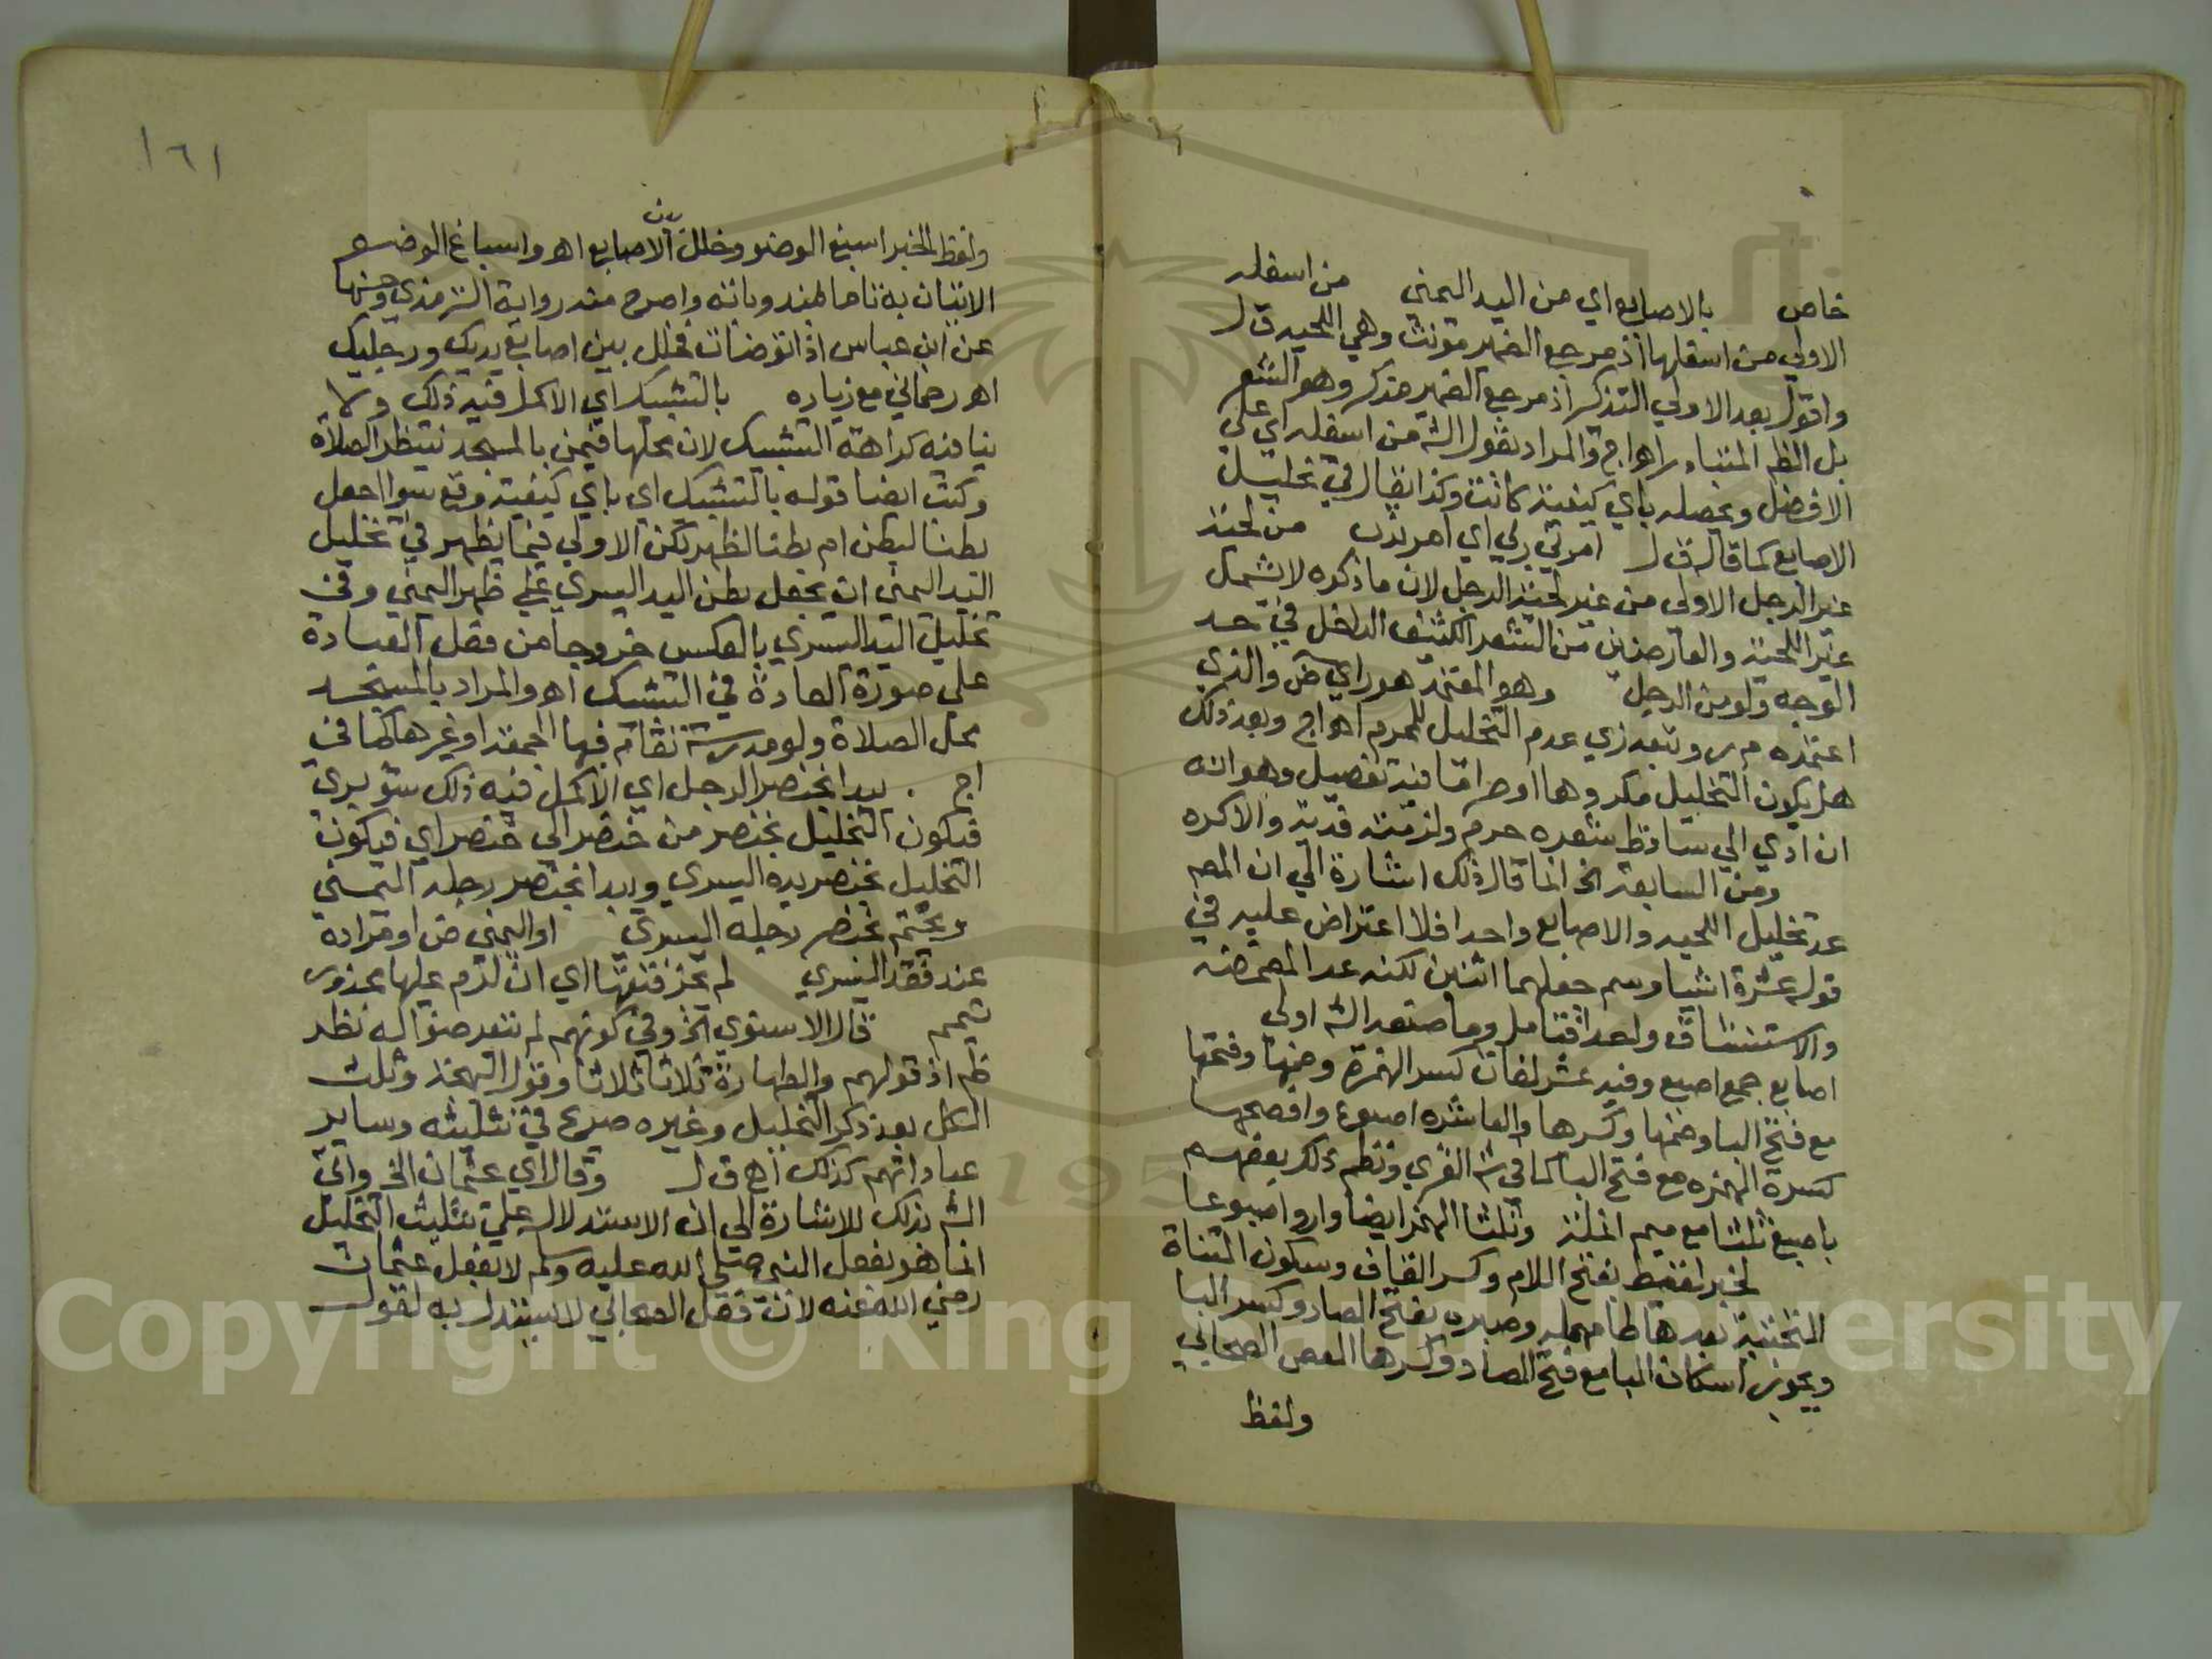 خاص بالاصابع اي من اليد اليمني من اسفله
الاولي من اسفلها اذ مرجع الضمير مونث وهي اللحيه ق ل
واقول بعد الاولي التذكير اذ مرجع الضمير مذكر وهو الشعر
بل الظم المتبادر اهو اج والمراد بقول الشم من اسفله اي علي
الافضل ويحصله باي كيفية كانت وكذا يقال في تخليل
الاصابع كما قال ق ل امرني ربي اي امر ندب من لحية
غير الرجل الاولي من غير لحية الرجل لان ما ذكره لا يشمل
غير اللحية والعارضين من الشعر الكثيف الداخل في حد
الوجه ولو من الرجل وهو المعتمد هو راي ض والذي
اعتمده م ر وتبعه زي عدم التخليل للمحرم اهو اج وبعد ذلك
هل يكون التخليل مكروها او حراما فيه تفصيل وهو انه
ان ادي الي تساقط شعره حرم ولزمته فدية والا كره
ومن السابعة الخ انما قال ذلك اشارة الي ان المصم
عد تخليل اللحيه والاصابع واحدا فلا اعتراض عليه في
قوله عشرة اشيا وسم جعلهما اثنين لكنه عد المضمضه
والاستنشاق واحدا فتامل وما صنعه الشم اولي
اصابع جمع اصبع وفيه عشر لغات كسر الهمزة وضمها وفتحها
مع فتح البا وضمها وكسرها والعاشره اصبوع وافصحها
كسرة الهمزه مع فتح البا كما في شم الغزي ونظم ذلك بعضهم
باصبع ثلثا مع ميم انملة وثلثا الهمز ايضا وارو اصبوعا
لخبر لقيط بفتح اللام وكسر القاف وسكون المثناة
التحتية بعدها طا مهمله وصبره بفتح الصاد وكسر البا
ويجوز اسكان البا مع فتح الصاد وكسرها العص الصحابي
ولفظ
١٦١
ولفظ الخبر اسبغ الوضو وخلل بين الاصابع اهو واسباغ الوضو
الاتيان به تاما لمندوباته واصرح منه رواية الترمذي وحسنها
عن ابن عباس اذا توضات فخلل بين اصابع يديك ورجليك
اهو رحماني مع زياده بالتشبيك اي الاكمل فيه ذلك ولا
ينافيه كراهة التشبيك لان محلها فيمن بالمسجد ينتظر الصلاة
وكتب ايضا قوله بالتشبيك اي باي كيفية وقع سوا جعل
بطنا لبطن ام بطنا لظهر لكن الاولي فيما يظهر في تخليل
اليد اليمني ان يجعل بطن اليد اليسري علي ظهر اليمني وفي
تخليل اليد اليسري بالعكس خروجا من فعل العبادة
علي صورة العادة في التشبيك اهو والمراد بالمسجد
محل الصلاة ولو مدرسة تقام فيها الجمعة او غيرها كما في
اج . يبدا بخنصر الرجل اي الاكمل فيه ذلك شوبري
فيكون التخليل بخنصر من خنصر الي خنصر اي فيكون
التخليل بخنصر يده اليسري ويبدا بخنصر رجله اليمني
ويختم بخنصر رجله اليسري او اليمني ض او مراده
عند فقد اليسري لم يجز فتقها اي ان لزم عليها محذور
تيمم قال الاسنوي الخ وفي كونهم لم يتعرضوا له نظر
ظم اذ قولهم والطهارة ثلاثا ثلاثا وقول البهجة وثلث
الكل بعد ذكر التخليل وغيره صريح في تثليثه وساير
عباداتهم كذلك اهع ق ل وقال اي عثمان الخ واتي
الشم بذلك للاشارة الي ان الاستدلال علي تثليث التخليل
انما هو بفعل النبي صلي الله عليه وسلم لا بفعل عثمان
رضي الله عنه لان فعل الصحابي لا يستدل به لقول
Copyright © King Saud University
1957